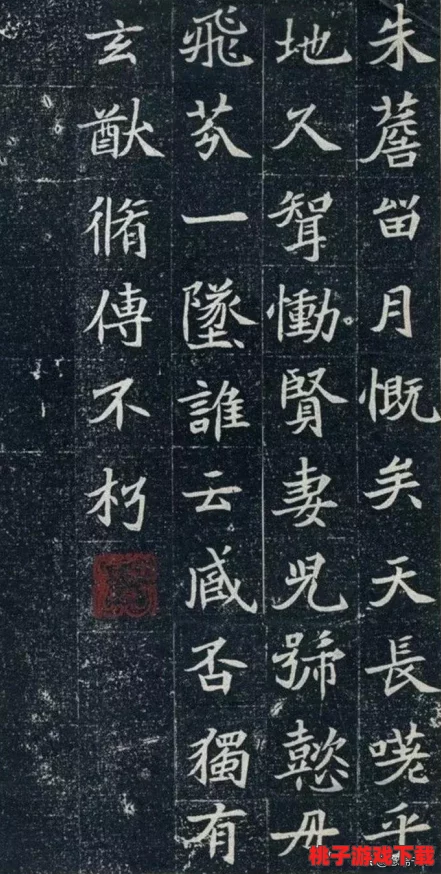 朱薝留月慨矣天長嗟乎
地久聟慟賢妻兒號懿母
飛芬一墜誰云臧否獨有
玄猷脩傳不朽
桃子游戏下载